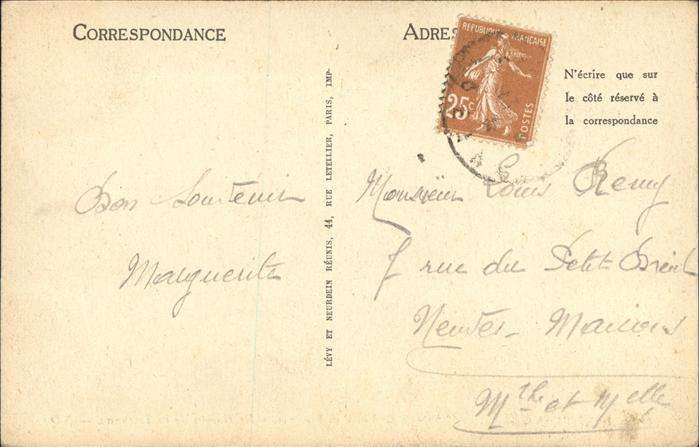 CORRESPONDANCE
Bon Souvenir
Marguerite
LÉVY ET NEURDEIN RÉUNIS, 44, RUE LETELLIER, PARIS, IMP.
ADRES
REPUBLIQUE FRANÇAISE
25c
POSTES
N'écrire que sur
le côté réservé à
la correspondance
Monsieur Louis Remy
7 rue du Petit
Maisons
Mthe et Melle